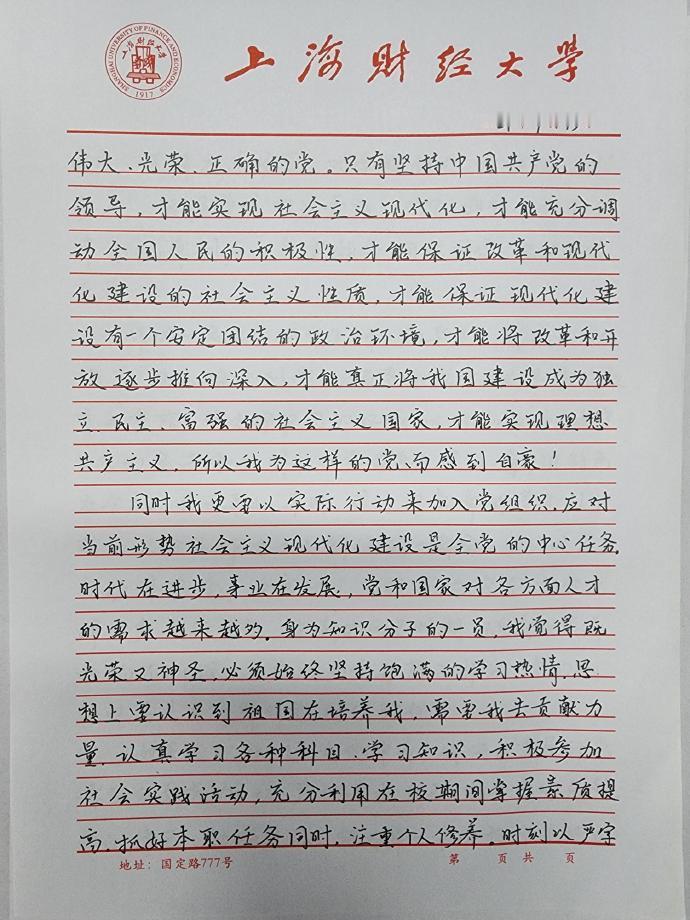 SHANGHAI UNIVERSITY OF FINANCE AND ECONOMICS
上海财经大学
1917
上海财经大学
伟大、光荣、正确的党。只有坚持中国共产党的
领导，才能实现社会主义现代化，才能充分调
动全国人民的积极性，才能保证改革和现代
化建设的社会主义性质，才能保证现代化建
设有一个安定团结的政治环境，才能将改革和开
放逐步推向深入，才能真正将我国建设成为独
立、民主、富强的社会主义国家，才能实现理想
共产主义，所以我为这样的党，而感到自豪！
同时我更要以实际行动来加入党组织，应对
当前形势社会主义现代化建设是全党的中心任务。
时代在进步，事业在发展，党和国家对各方面人才
的需求越来越多。身为知识分子的一员，我觉得既
光荣又神圣，必须始终坚持饱满的学习热情，思
想上要认识到祖国在培养我，需要我去贡献力
量，认真学习各种科目、学习知识，积极参加
社会实践活动，充分利用在校期间掌握素质提
高，抓好本职任务同时，注重个人修养。时刻以严字
地址：国定路777号
第 页 共 页